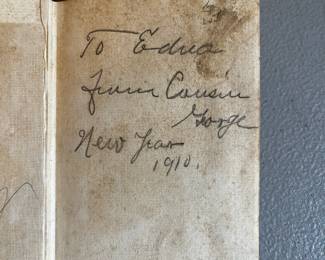 To Edna
from Cousin
George
New Year
1910.